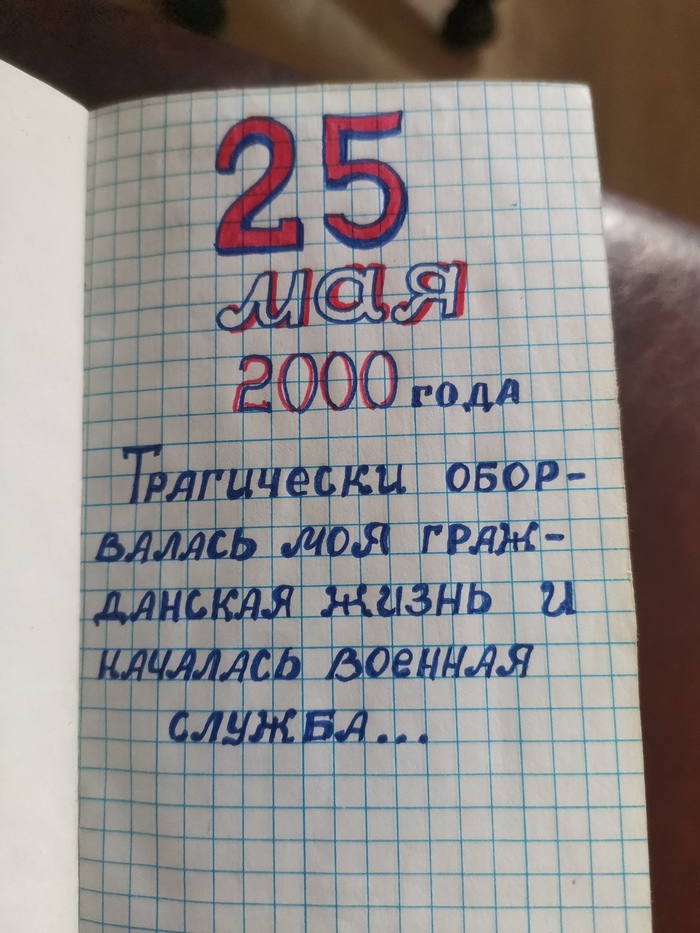 25
мая
2000 года
Трагически обор-
валась моя граж-
данская жизнь и
началась военная
служба...